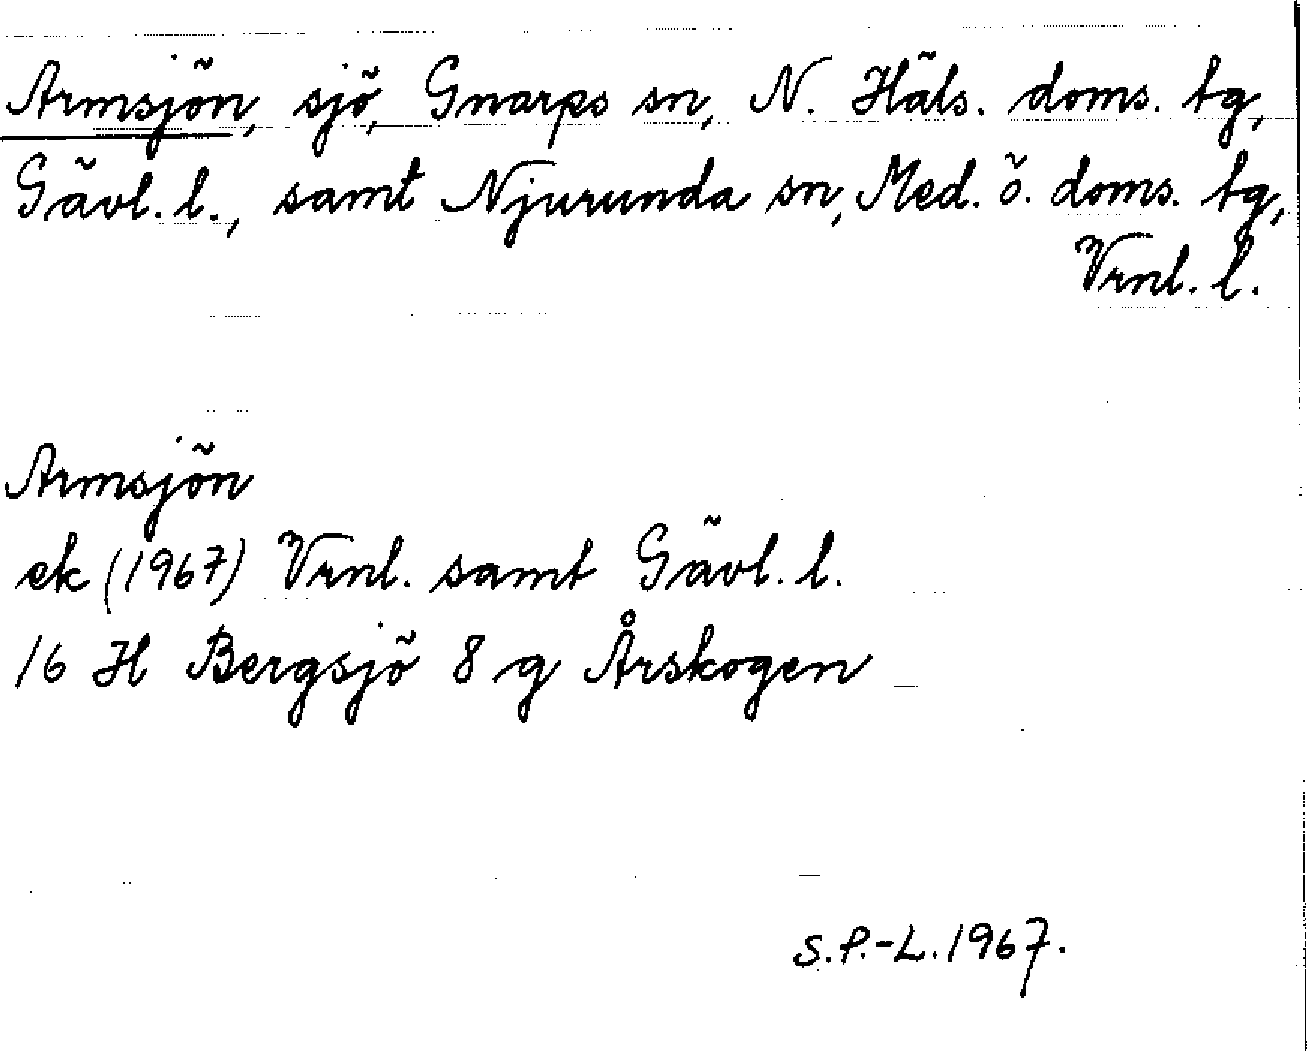 Armsjön, sjö, Gnarps sn, N. Häls. doms. tg,
Gävl. l., samt Njurunda sn, Med. ö. doms. tg,
Vrnl. l.
Armsjön
ek (1967) Vrnl. samt Gävl. l.
16 H Bergsjö 8 g Årskogen
S.P.-L. 1967.